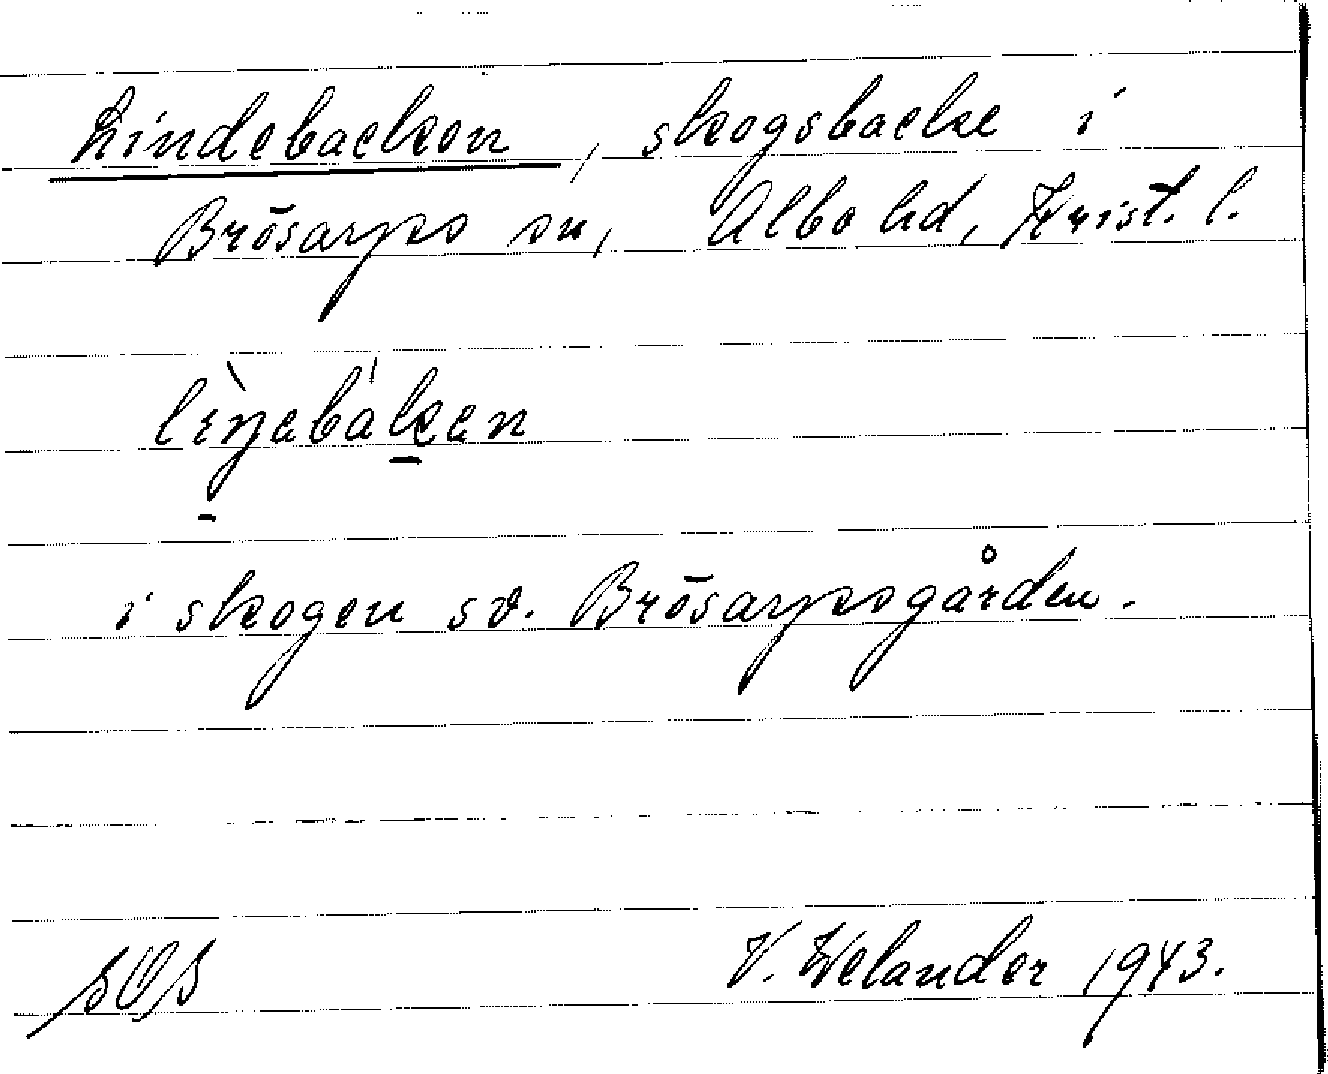 Lindebacken, skogsbacke i
Brösarps sn, Albo hd, Krist. l.
lìŋebáken
i skogen sv. Brösarpsgården.
SOS V. Welander 1943.